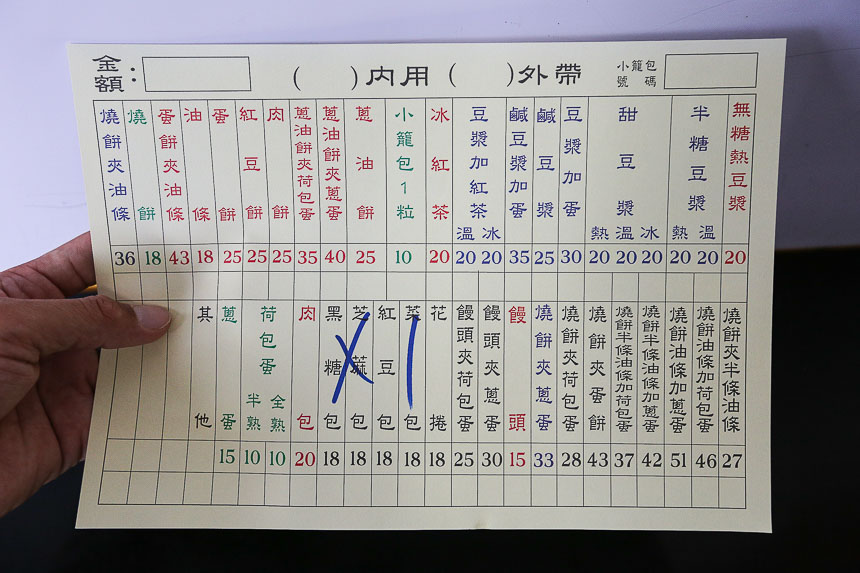 金額：
(　)內用 (　)外帶
小籠包號碼
無糖熱豆漿
20
半糖豆漿
溫
20
熱
20
甜豆漿
冰
20
溫
20
熱
20
豆漿加蛋
30
鹹豆漿
25
鹹豆漿加蛋
35
豆漿加紅茶
冰
20
溫
20
冰紅茶
20
小籠包1粒
10
蔥油餅
25
蔥油餅夾蔥蛋
40
蔥油餅夾荷包蛋
35
肉餅
25
紅豆餅
25
蛋餅
25
油條
18
蛋餅夾油條
43
燒餅
18
燒餅夾油條
36
燒餅夾半條油條
27
燒餅油條加荷包蛋
46
燒餅油條加蔥蛋
51
燒餅半條油條加蔥蛋
42
燒餅半條油條加荷包蛋
37
燒餅夾蛋餅
43
燒餅夾荷包蛋
28
燒餅夾蔥蛋
33
饅頭
15
饅頭夾蔥蛋
30
饅頭夾荷包蛋
25
花捲
18
菜包
18
紅豆包
18
芝蔴包
18
黑糖包
18
肉包
20
荷包蛋
全熟
10
半熟
10
蔥蛋
15
其他